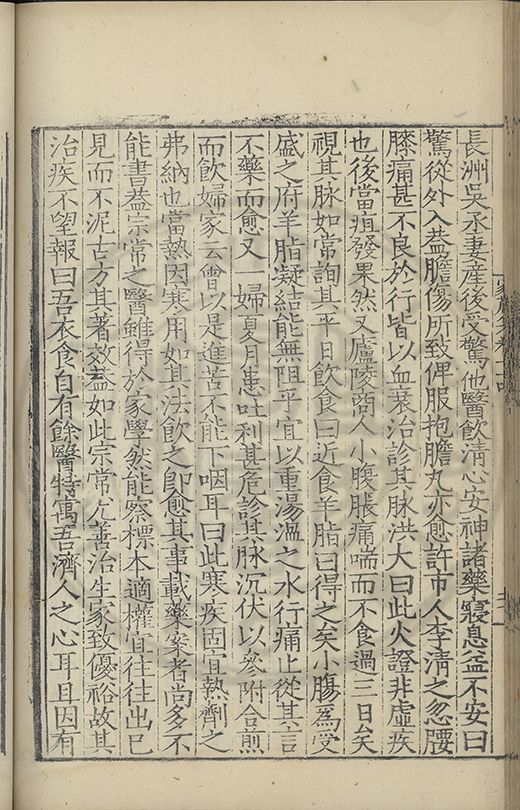 長洲吳丞妻產後受驚他醫飲清心安神諸藥寢息益不安曰
驚從外入葢膽傷所致俾服抱膽丸亦愈許市人李清之忽腰
膝痛甚不良於行皆以血衰治診其脉洪大曰此火證非虛疾
也後當疽發果然又廬陵商人小腹脹痛喘而不食過三日矣
視其脉如常詢其平日飲食曰近食羊脂曰得之矣小腸為受
盛之府羊脂凝結能無阻乎宜以重湯溫之水行痛止從其言
不藥而愈又一婦夏月患吐利甚危診其脉沉伏以參附合煎
而飲婦家云曾以是進苦不能下咽耳曰此寒疾固宜熱劑之
弗納也當熱因寒用如其法飲之即愈其事載藥案者尚多不
能書葢宗常之醫雖得於家學然能察標本適權宜往往出已
見而不泥古方其著效葢如此宗常尤善治生家致優裕故其
治疾不望報曰吾衣食自有餘醫特寓吾濟人之心耳且因有